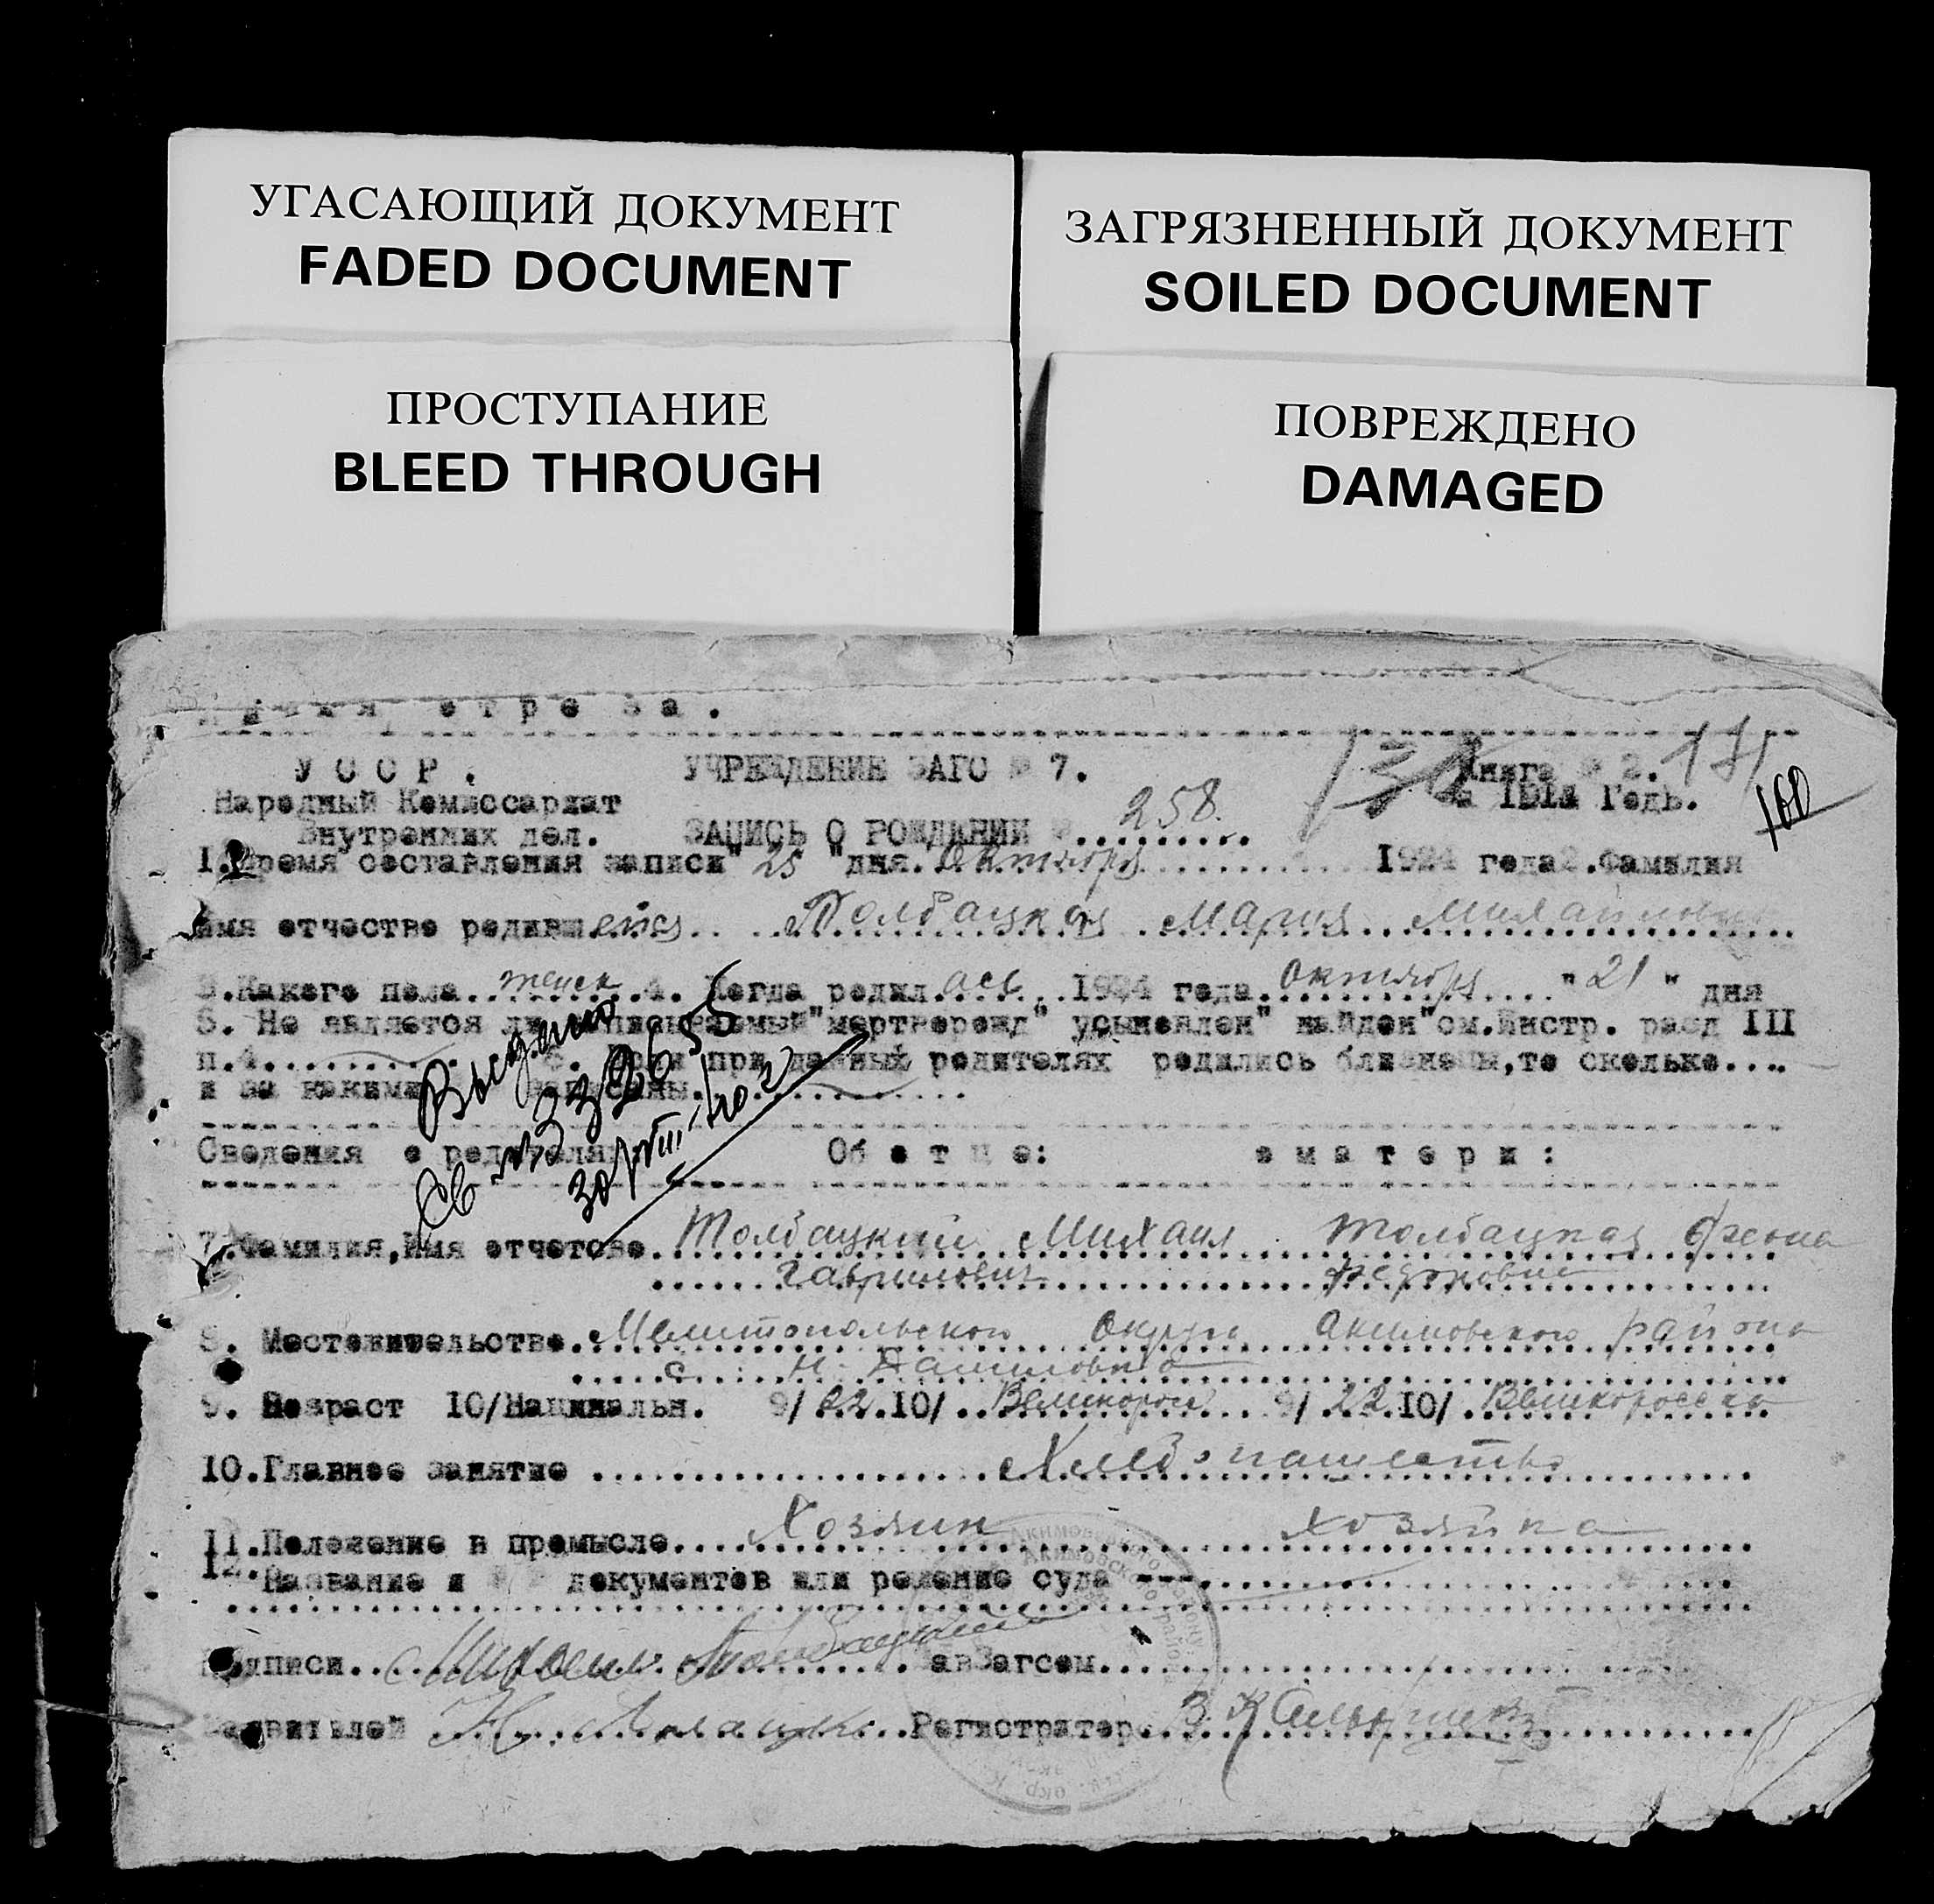 УГАСАЮЩИЙ ДОКУМЕНТ
FADED DOCUMENT
ЗАГРЯЗНЕННЫЙ ДОКУМЕНТ
SOILED DOCUMENT
ПРОСТУПАНИЕ
BLEED THROUGH
ПОВРЕЖДЕНО
DAMAGED
Линия отреза.
УССР. УЧРЕЖДЕНИЕ ЗАГС № 7. Книга № 2. 171
Народный Комиссариат Годъ. 160
Внутренних дел. ЗАПИСЬ О РОЖДЕНИИ №.. 258.
1. Время составления записи "25" дня. Октября 1924 года 2. Фамилия
имя отчество родивш ейся Толбацкая Мария Михайловна
3. Какого пола женск 4. Когда родил ась 1924 года Октября "21" дня
5. Не является ли записываемый "мертворожд" усыновлен" найден" см. Инстр. разд III
п. 4. 6. Если при данных родителях родились близнецы, то сколько....
и за какими записаны.
Выдано
Св
Сведения о родителях Об отце: о матери:
7. Фамилия, Имя отчетсво. Толбацкий Михаил Толбацкая
Гаврилович Федоровна
8. Местожительство. Мелитопольского Округа Акимовского района
с. Н. Даниловка
9. Возраст 10/Национальн. 9/ 22. 10/ Великоросс 9/ 22 10/ Великоросска
10. Главное занятие Хлебопашество
11. Положение в промысле. Хозяин хозяйка
12. Название и № документов или решение суда ---
Подписи Михаил Толбацкий ЗавЗагсом
Заявителей Регистратор